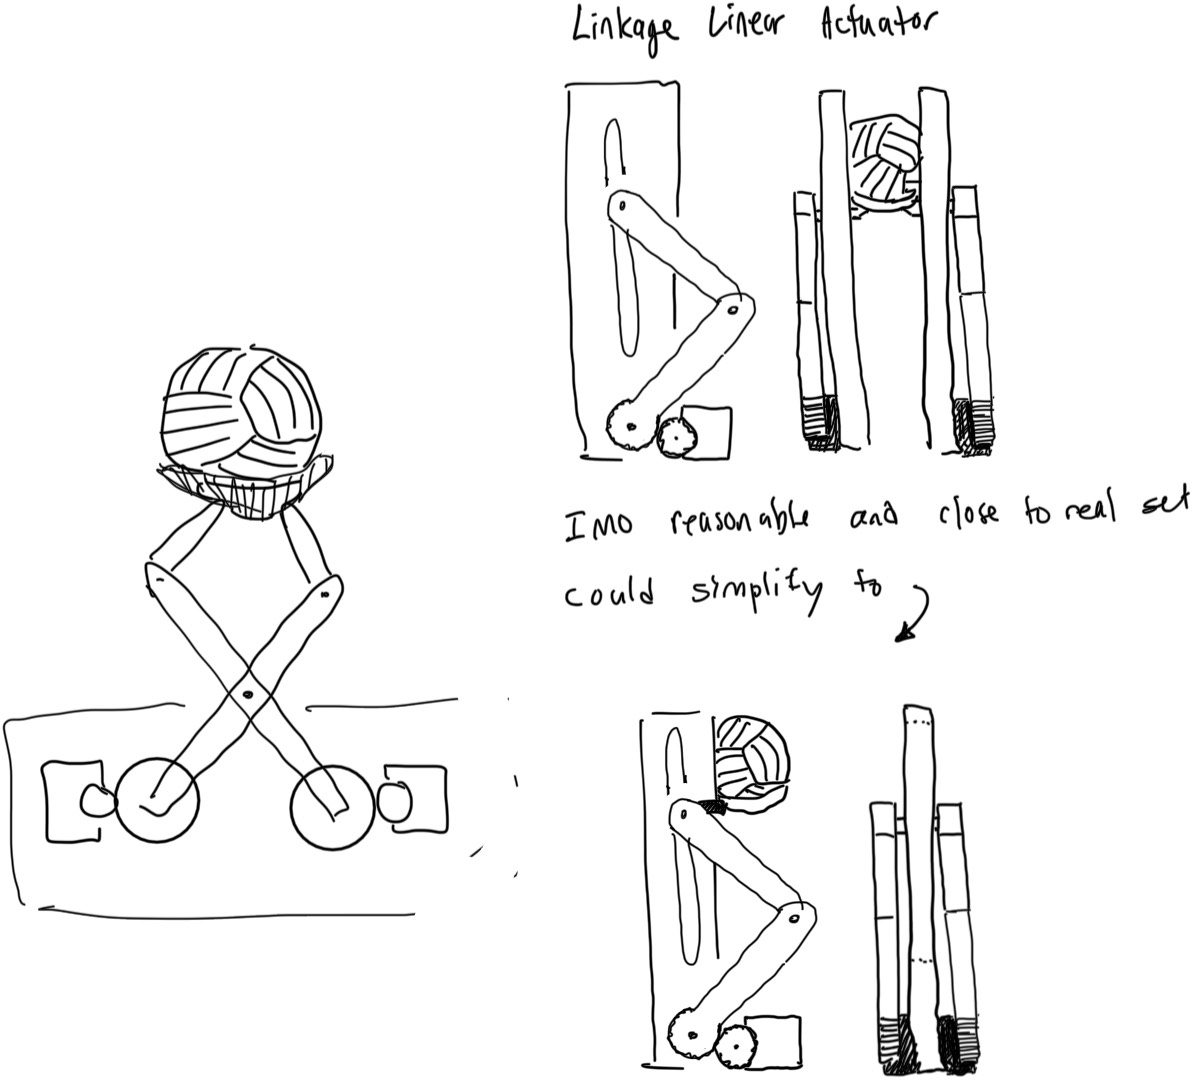 Linkage Linear Actuator
IMO reasonable and close to real set
could simplify to